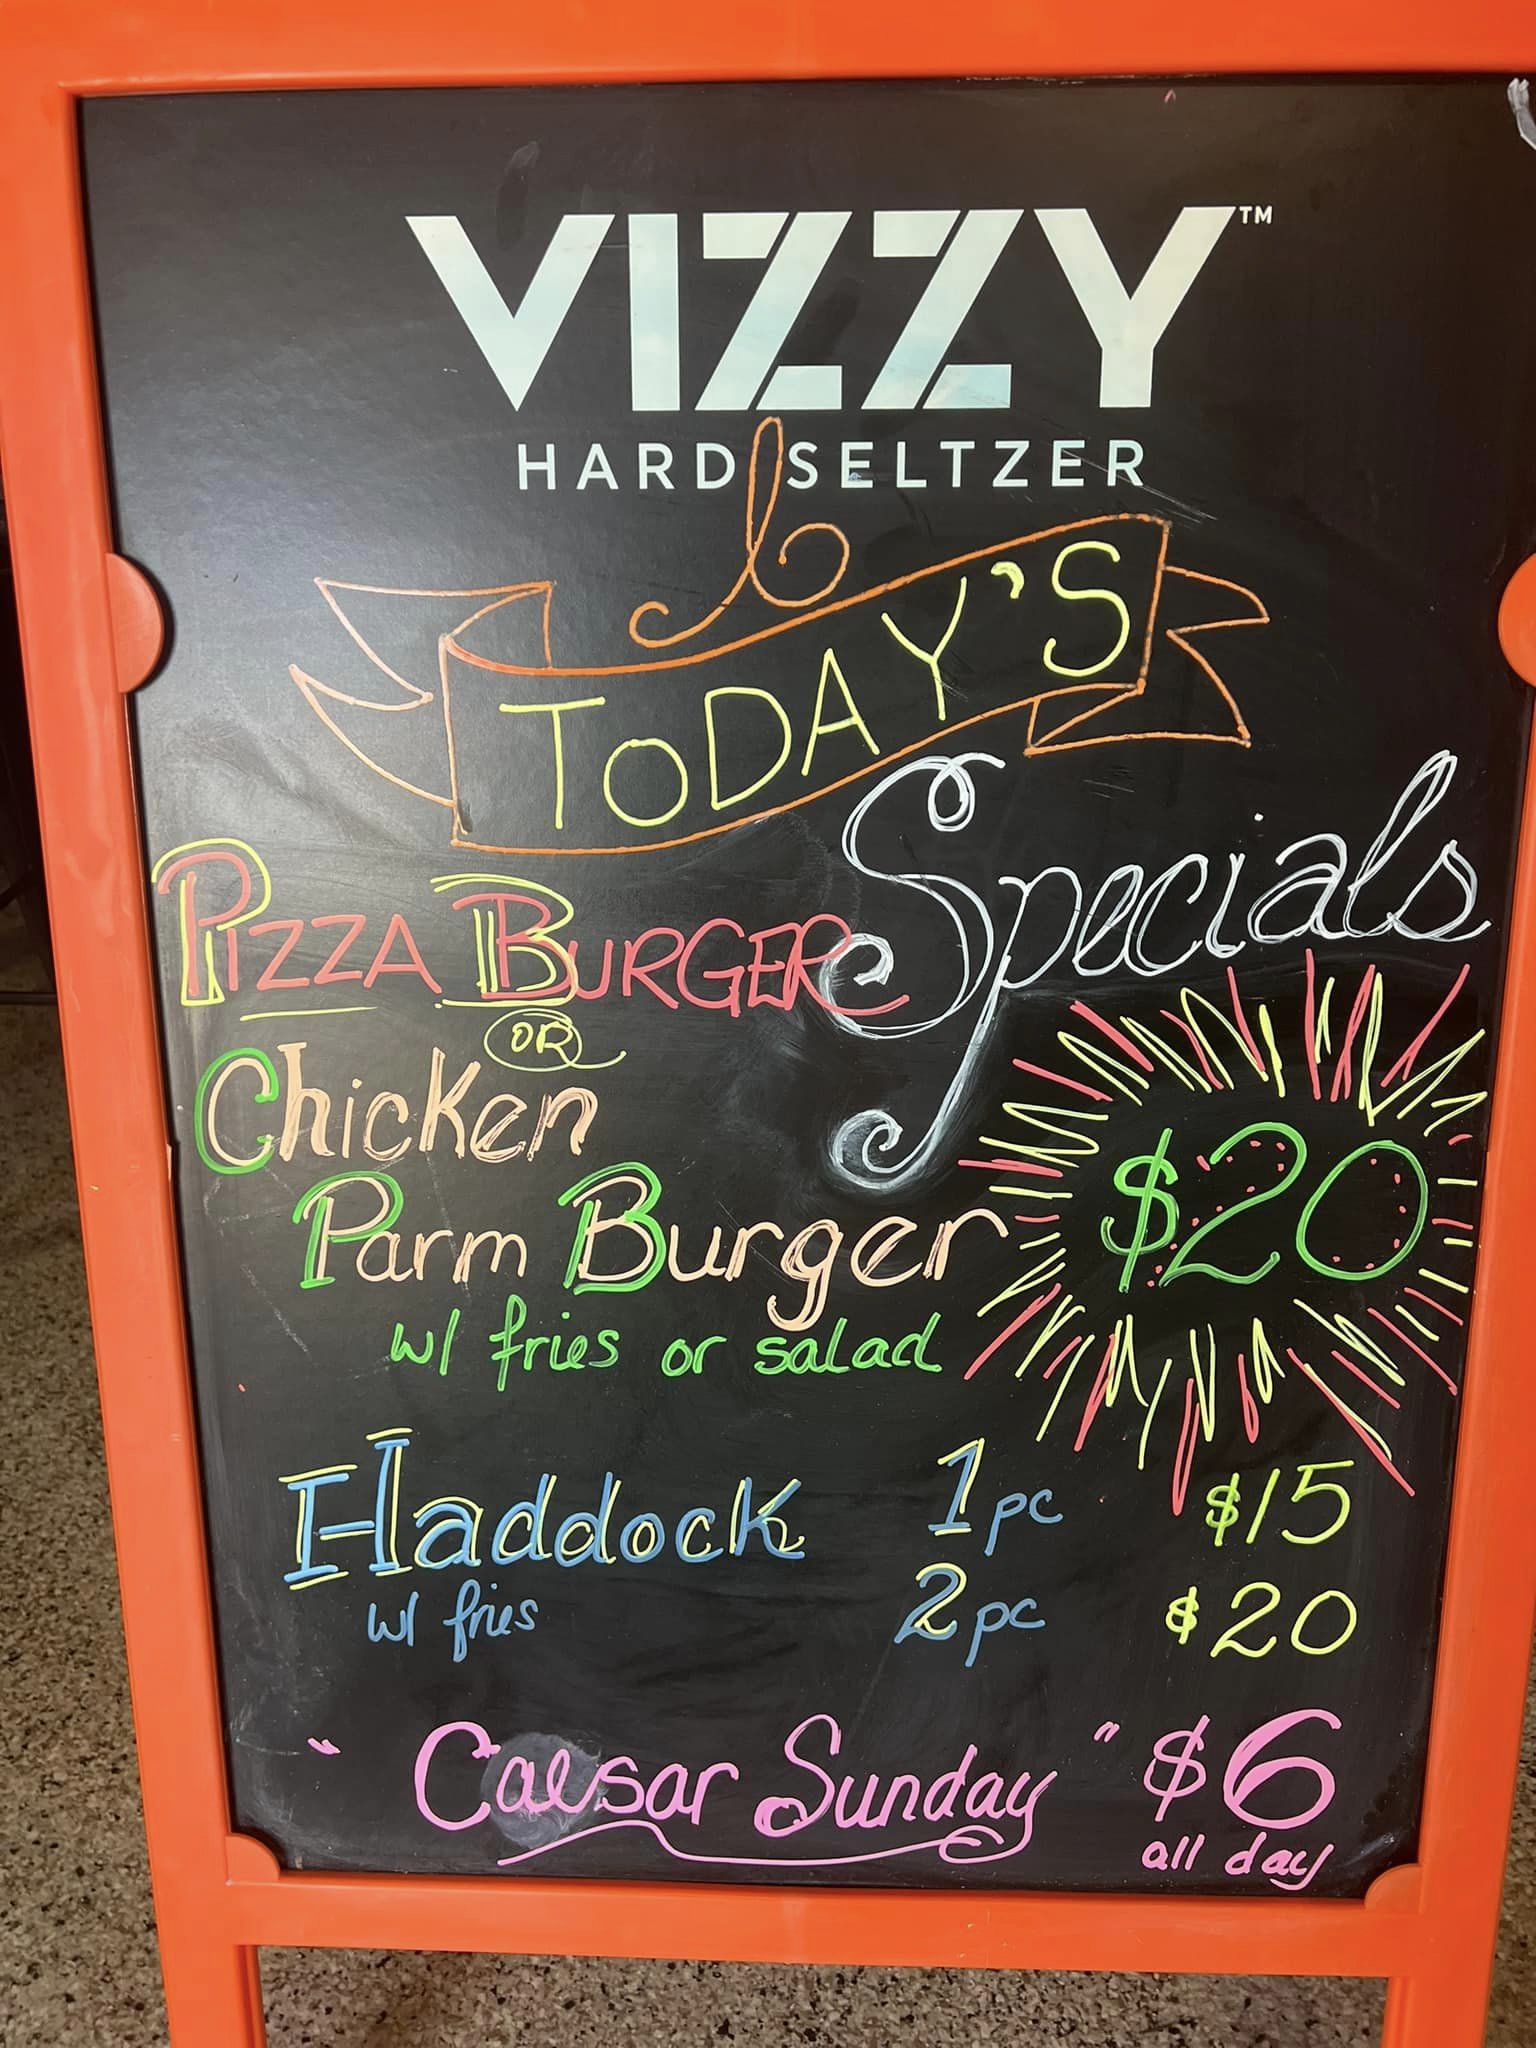 VIZZY™
HARD SELTZER
TODAY'S
Specials
PIZZA BURGER
OR
Chicken
Parm Burger
w/ fries or salad
$20
Haddock 1pc $15
w/ fries 2pc $20
"Caesar Sunday" $6
all day